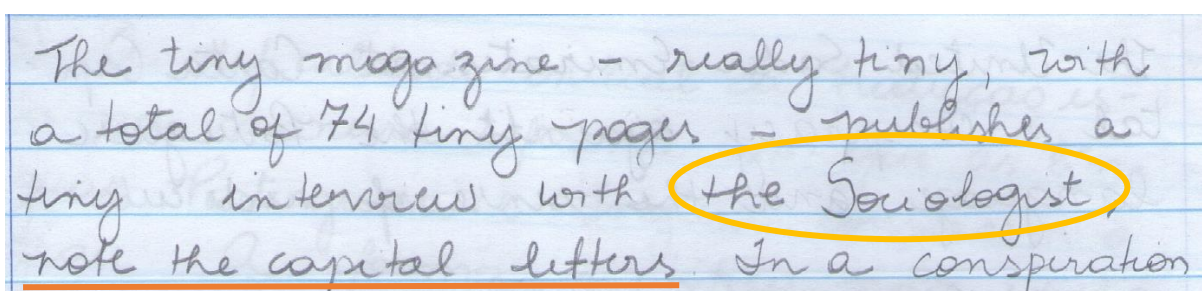 The tiny magazine - really tiny, with
a total of 74 tiny pages - publishes a
tiny interview with the Sociologist,
note the capital letters. In a conspiration